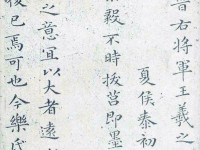 晉右將軍王羲之
夏侯泰初
樂毅不時拔莒即墨
之意宜以大者遠
後已焉可也今樂氏